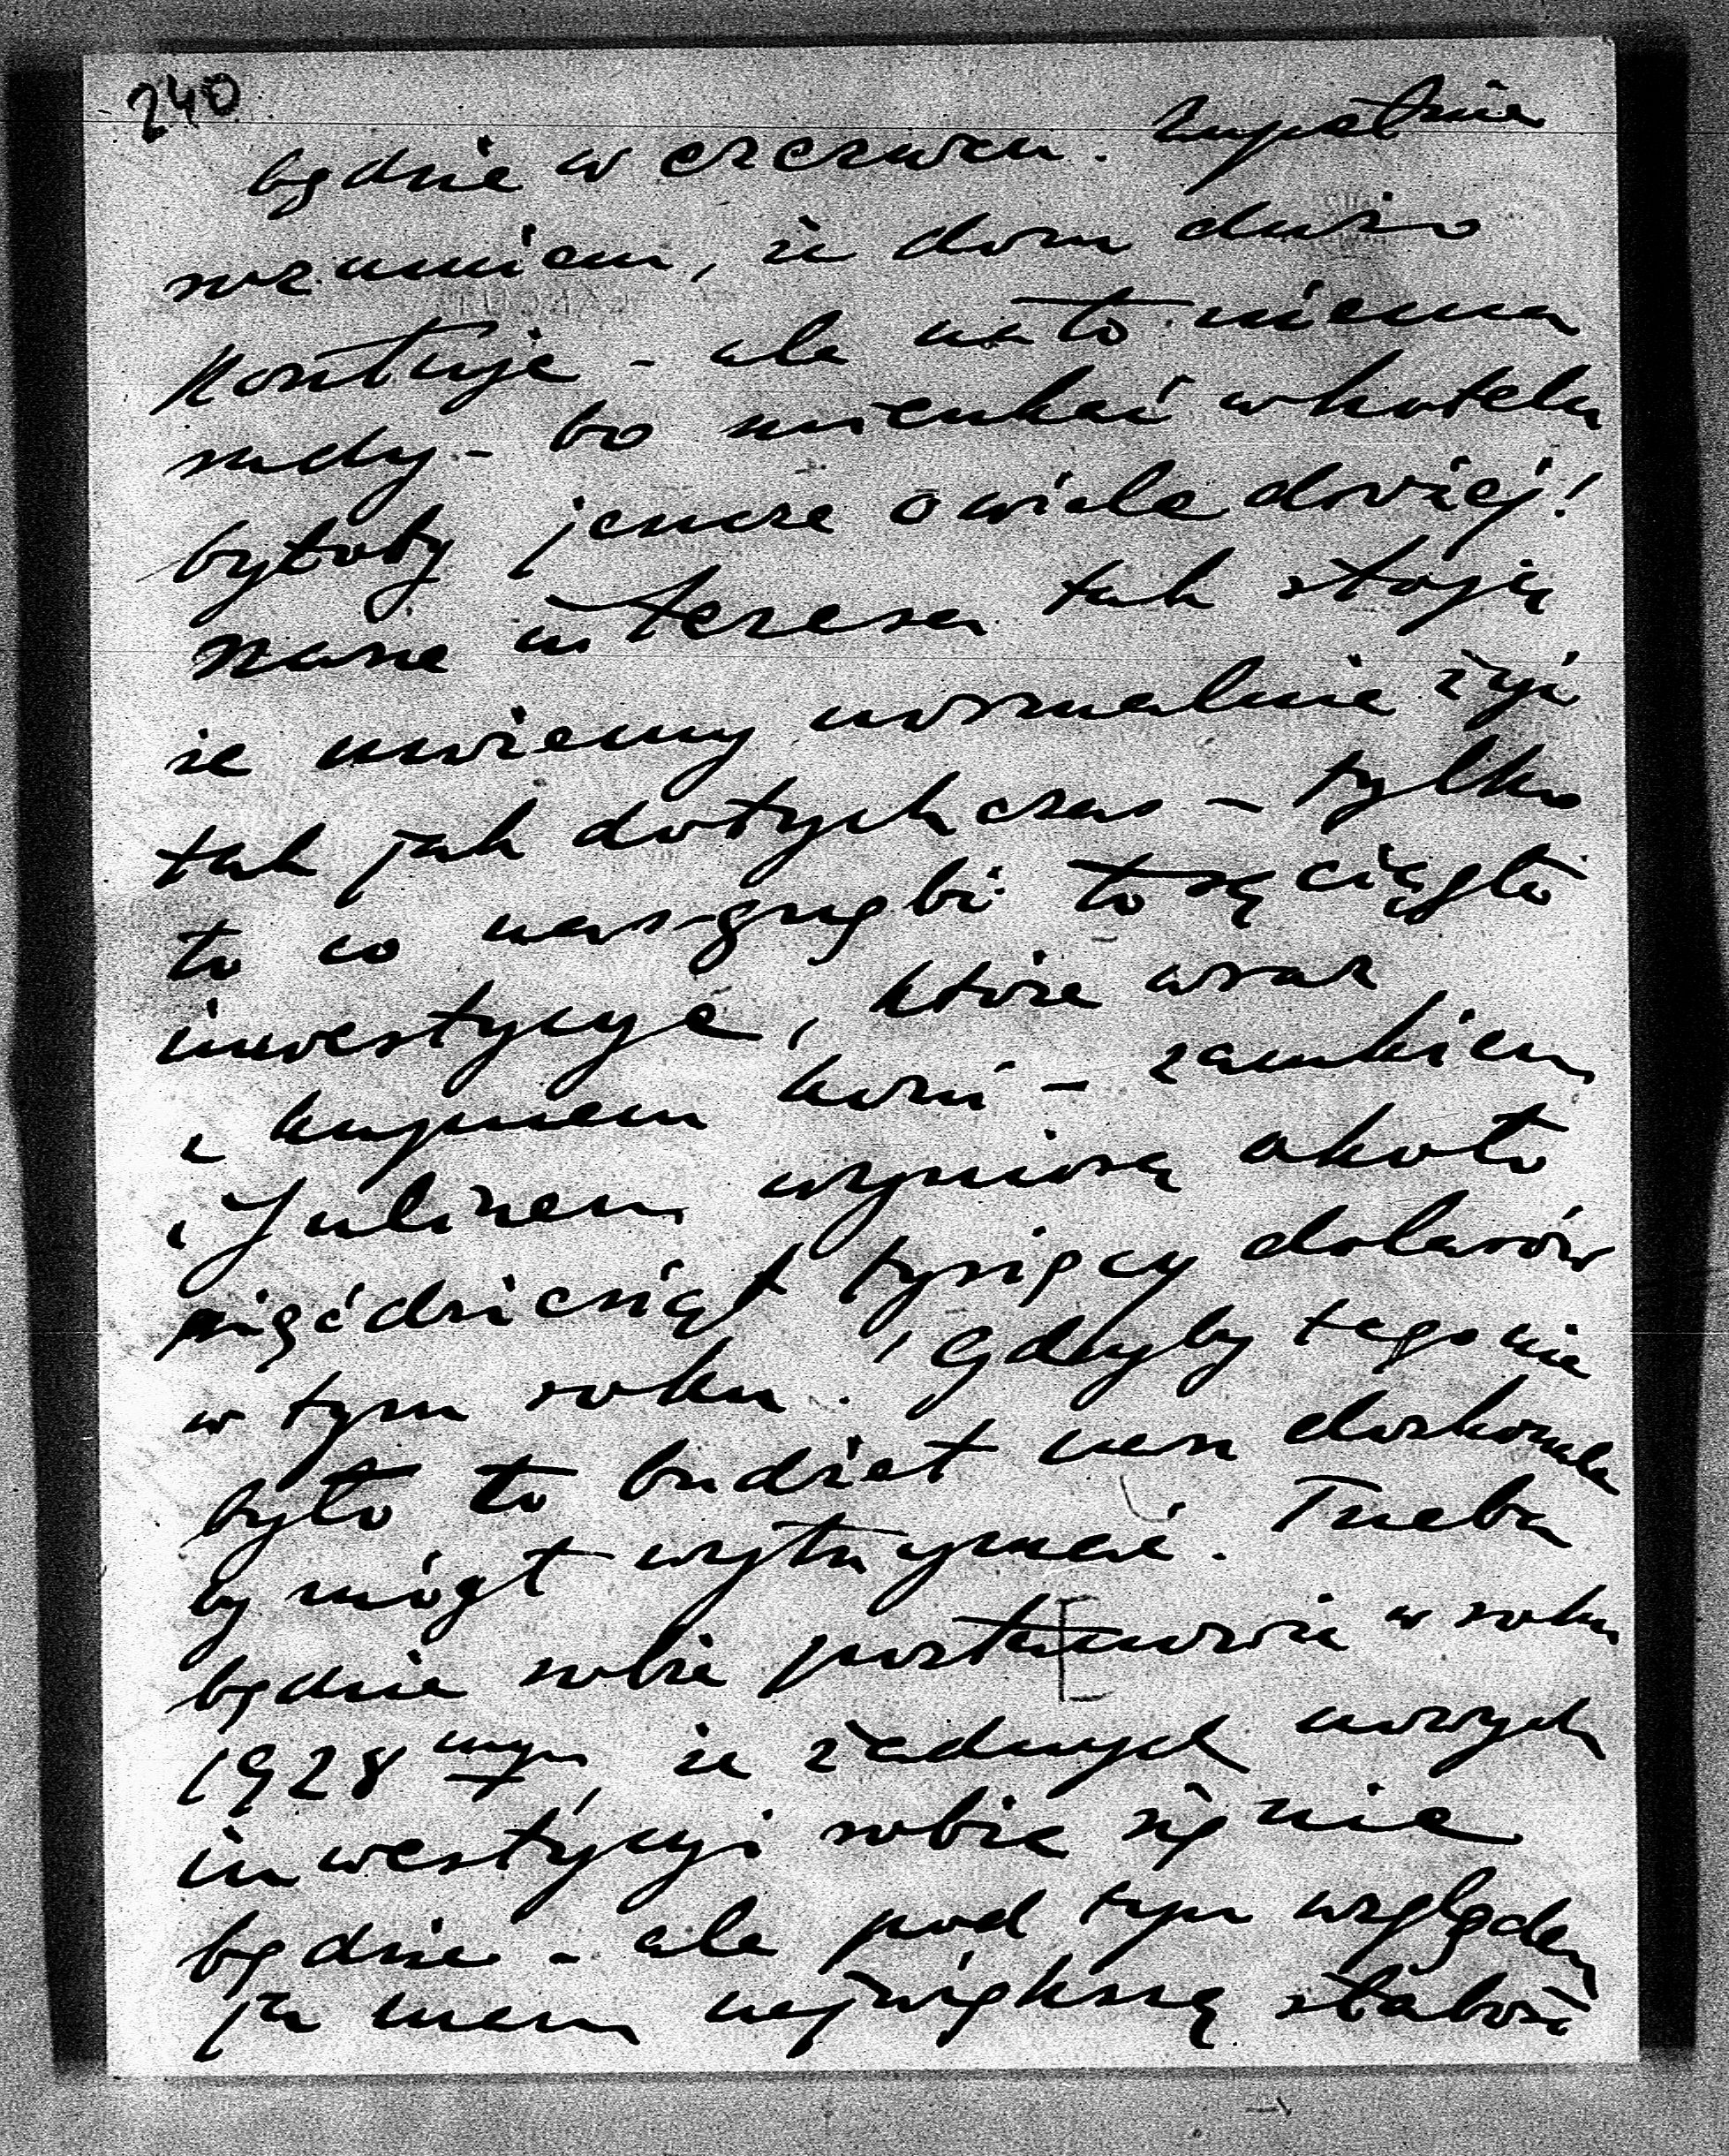 240
będzie w czerwcu. Zupełnie
rozumiem, że dom dużo
kosztuje - ale na to niema
rady - bo mieszkać w hotelu
byłoby jeszcze o wiele drożej!
Nasze interesa tak stoją
że możemy normalnie żyć
tak jak dotychczas - tylko
to co nas gnębi to są ciągłe
inwestycye, które wraz
z kupnem koni - zamkiem
i Julinem wyniosą około
pięćdziesiąt tysięcy dolarów
w tym roku. Gdyby tego nie
było to budżet nasz doskonale
by mógł wytrzymać. Trzeba
będzie sobie postanowić w roku
1928 mym, że żadnych nowych
inwestycyi robić się nie
będzie - ale pod tym względem
ja mam największą słabość